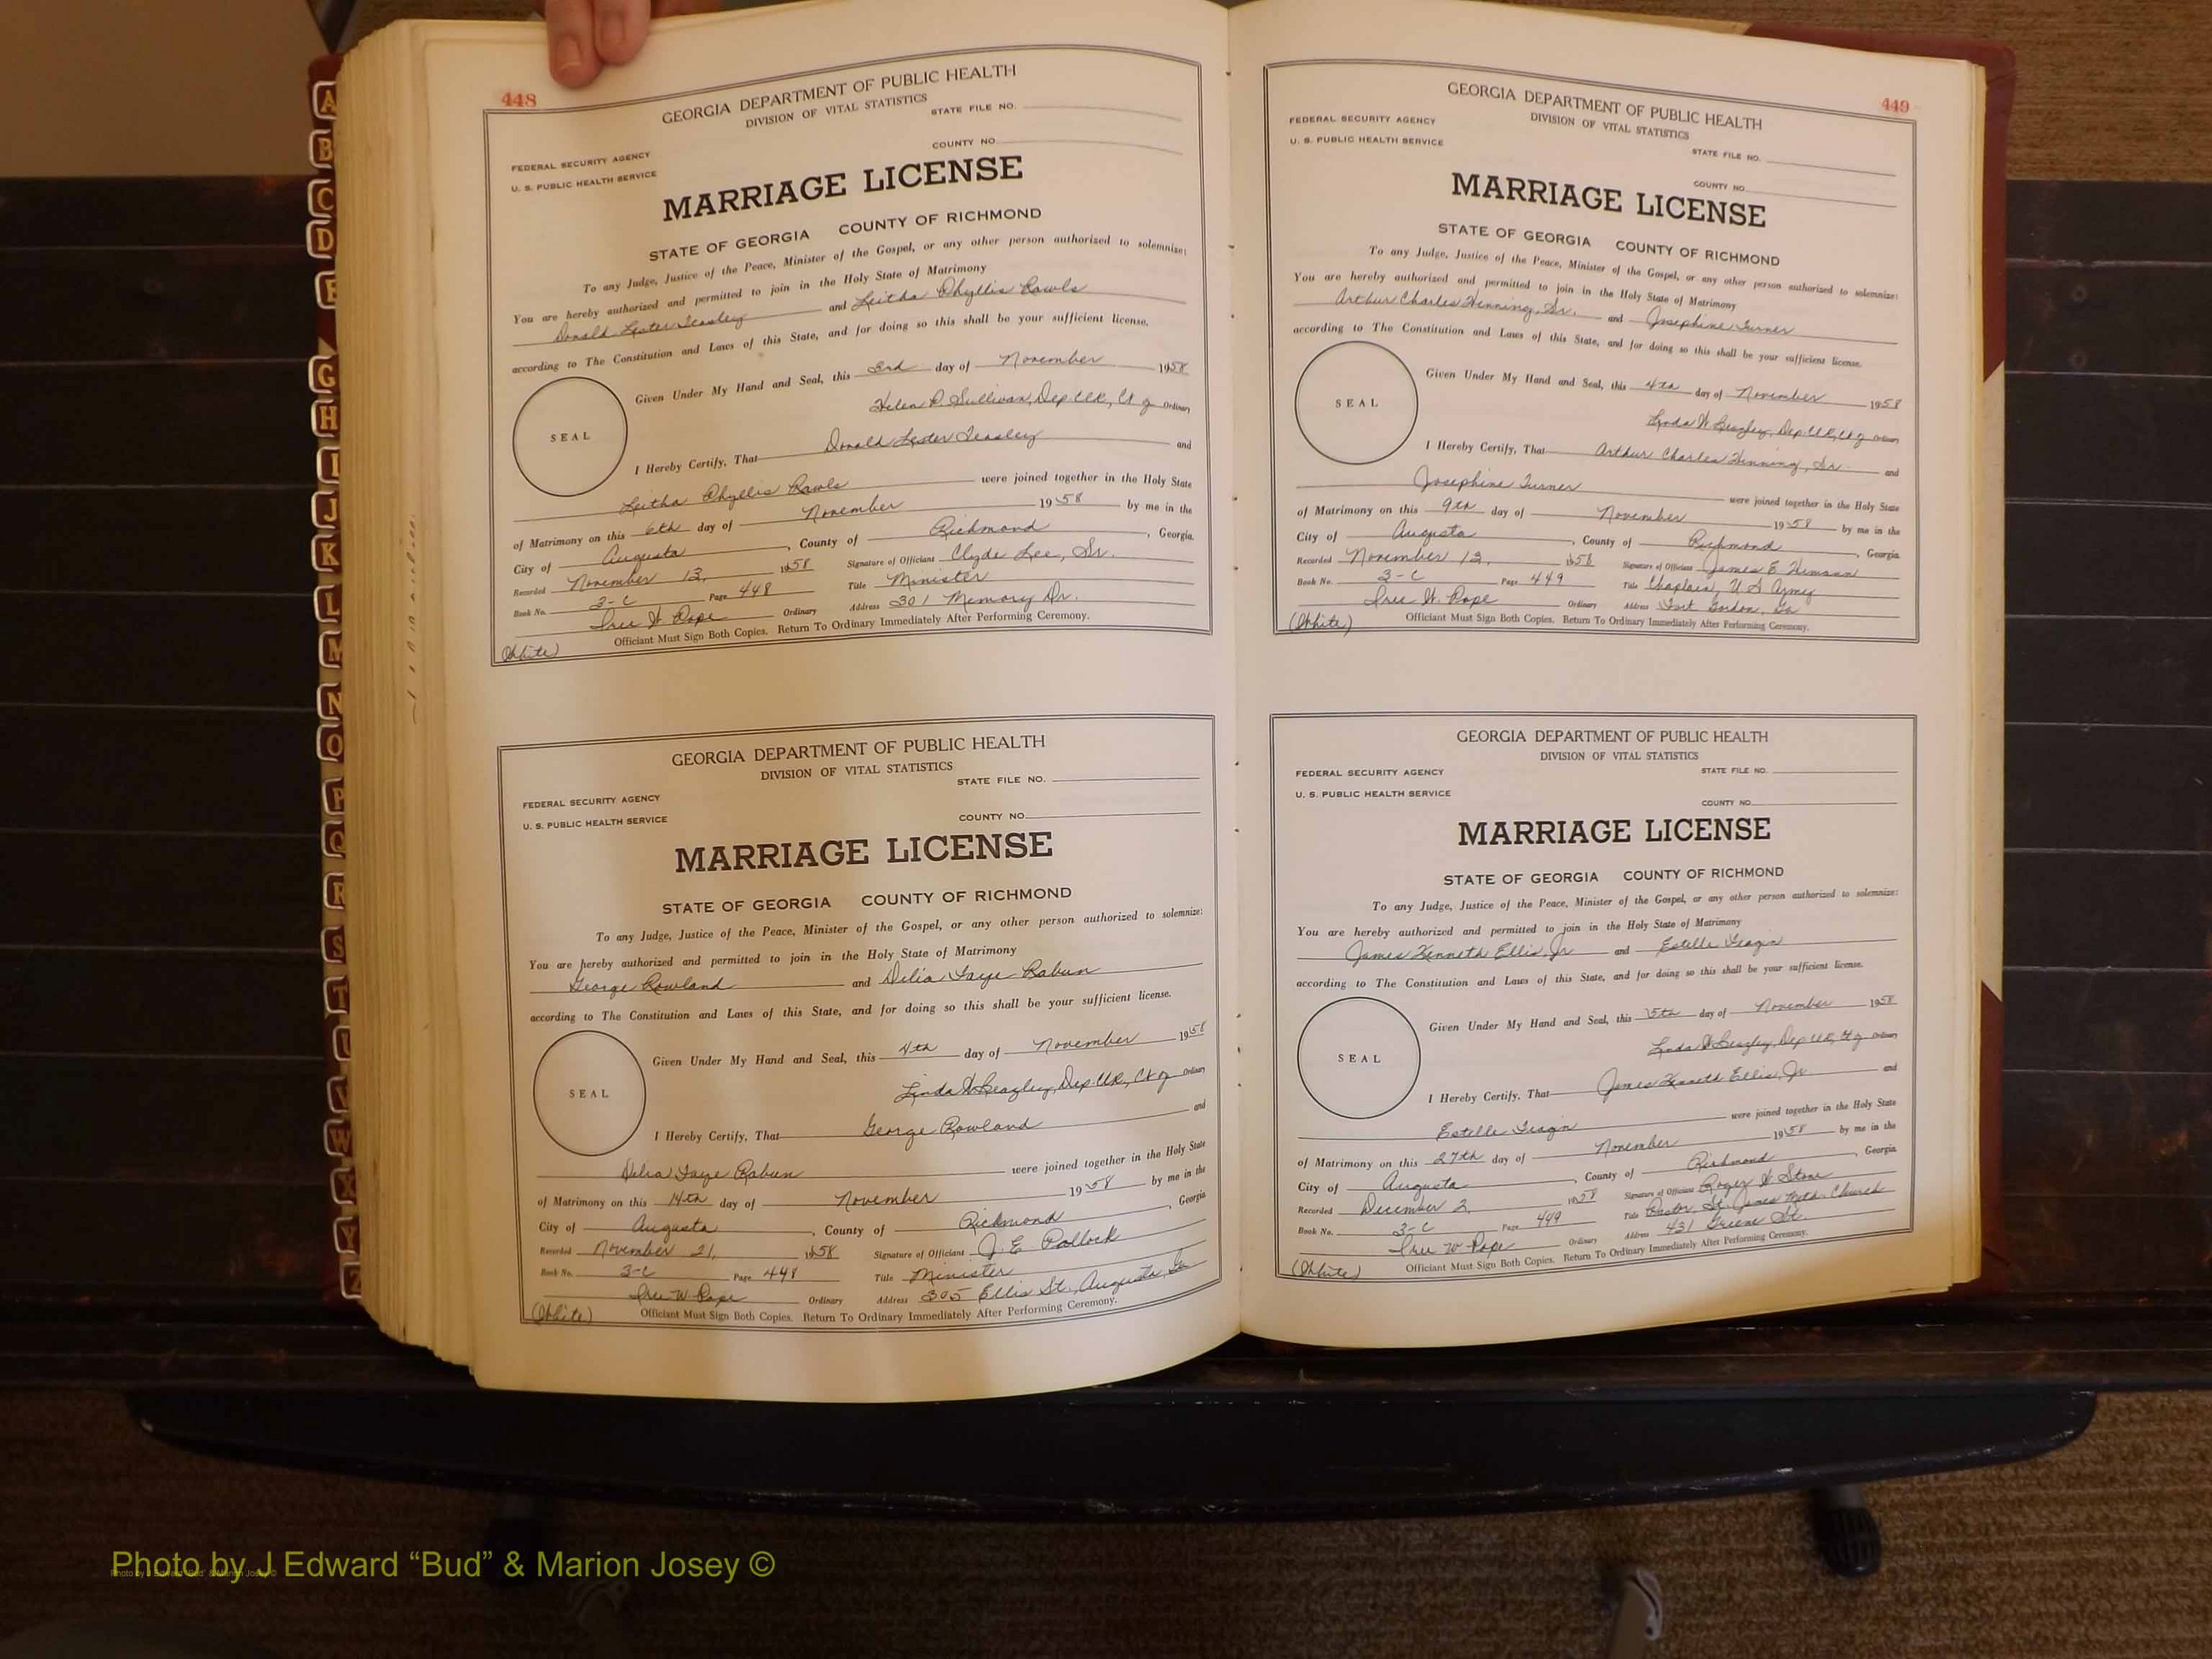 A
B
C
D
F
G
H
I
J
K
L
M
N
O
P
Q
R
S
T
V
W
X
Y
Z
448
GEORGIA DEPARTMENT OF PUBLIC HEALTH
DIVISION OF VITAL STATISTICS
STATE FILE NO.
FEDERAL SECURITY AGENCY
COUNTY NO.
U. S. PUBLIC HEALTH SERVICE
MARRIAGE LICENSE
STATE OF GEORGIA COUNTY OF RICHMOND
To any Judge, Justice of the Peace, Minister of the Gospel, or any other person authorized to solemnize:
You are hereby authorized and permitted to join in the Holy State of Matrimony
Donald Lester Teasley and Leitha Phyllis Rawls
according to The Constitution and Laws of this State, and for doing so this shall be your sufficient license.
Given Under My Hand and Seal, this 3rd day of November 1958
Helen P. Sullivan, Dep. Clk, Ct of Ordinary
SEAL
I Hereby Certify, That Donald Lester Teasley and
Leitha Phyllis Rawls were joined together in the Holy State
of Matrimony on this 6th day of November 1958 by me in the
City of Augusta, County of Richmond, Georgia.
Recorded November 13, 1958 Signature of Officiant Clyde Lee, Sr.
Book No. 3-C Page 448 Title Minister
Iree W. Pope Ordinary Address 301 Memory Dr.
(White) Officiant Must Sign Both Copies. Return To Ordinary Immediately After Performing Ceremony.
GEORGIA DEPARTMENT OF PUBLIC HEALTH
DIVISION OF VITAL STATISTICS
STATE FILE NO.
FEDERAL SECURITY AGENCY
COUNTY NO.
U. S. PUBLIC HEALTH SERVICE
MARRIAGE LICENSE
STATE OF GEORGIA COUNTY OF RICHMOND
To any Judge, Justice of the Peace, Minister of the Gospel, or any other person authorized to solemnize:
You are hereby authorized and permitted to join in the Holy State of Matrimony
George Rowland and Delia Faye Rabun
according to The Constitution and Laws of this State, and for doing so this shall be your sufficient license.
Given Under My Hand and Seal, this 4th day of November 1958
Linda W Beazley, Dep. Clk, Ct of Ordinary
SEAL
I Hereby Certify, That George Rowland and
Delia Faye Rabun were joined together in the Holy State
of Matrimony on this 14th day of November 1958 by me in the
City of Augusta, County of Richmond, Georgia
Recorded November 21, 1958 Signature of Officiant J. E. Pollock
Book No. 3-C Page 448 Title Minister
Iree W. Pope Ordinary Address 305 Ellis St., Augusta, Ga
(White) Officiant Must Sign Both Copies. Return To Ordinary Immediately After Performing Ceremony.
449
GEORGIA DEPARTMENT OF PUBLIC HEALTH
DIVISION OF VITAL STATISTICS
FEDERAL SECURITY AGENCY
U. S. PUBLIC HEALTH SERVICE
STATE FILE NO.
COUNTY NO.
MARRIAGE LICENSE
STATE OF GEORGIA COUNTY OF RICHMOND
To any Judge, Justice of the Peace, Minister of the Gospel, or any other person authorized to solemnize:
You are hereby authorized and permitted to join in the Holy State of Matrimony
Arthur Charles Henning, Sr. and Josephine Turner
according to The Constitution and Laws of this State, and for doing so this shall be your sufficient license.
Given Under My Hand and Seal, this 4th day of November 1958
Linda W Beazley, Dep. Clk, Ct of Ordinary
SEAL
I Hereby Certify, That Arthur Charles Henning, Sr. and
Josephine Turner were joined together in the Holy State
of Matrimony on this 9th day of November 1958 by me in the
City of Augusta, County of Richmond, Georgia
Recorded November 13, 1958 Signature of Officiant James E
Book No. 3-C Page 449 Title Chaplain, U S Army
Iree W. Pope Ordinary Address Fort Gordon, Ga
(White) Officiant Must Sign Both Copies. Return To Ordinary Immediately After Performing Ceremony.
GEORGIA DEPARTMENT OF PUBLIC HEALTH
DIVISION OF VITAL STATISTICS
FEDERAL SECURITY AGENCY STATE FILE NO.
U. S. PUBLIC HEALTH SERVICE
COUNTY NO.
MARRIAGE LICENSE
STATE OF GEORGIA COUNTY OF RICHMOND
To any Judge, Justice of the Peace, Minister of the Gospel, or any other person authorized to solemnize:
You are hereby authorized and permitted to join in the Holy State of Matrimony
James Kenneth Ellis, Jr and Estelle
according to The Constitution and Laws of this State, and for doing so this shall be your sufficient license.
Given Under My Hand and Seal, this 5th day of November 1958
Linda W Beazley, Dep Clk, Ct of Ordinary
SEAL
I Hereby Certify, That James Kenneth Ellis, Jr and
Estelle were joined together in the Holy State
of Matrimony on this 27th day of November 1958 by me in the
City of Augusta, County of Richmond, Georgia
Recorded December 2, 1958 Signature of Officiant Roger W. Stone
Book No. 3-C Page 449 Title Pastor, St. James Meth. Church
Iree W Pope Ordinary Address 431 Greene St.
(White) Officiant Must Sign Both Copies. Return To Ordinary Immediately After Performing Ceremony.
Photo by J Edward “Bud” & Marion Josey ©
Photo by J Edward "Bud" & Marion Josey ©